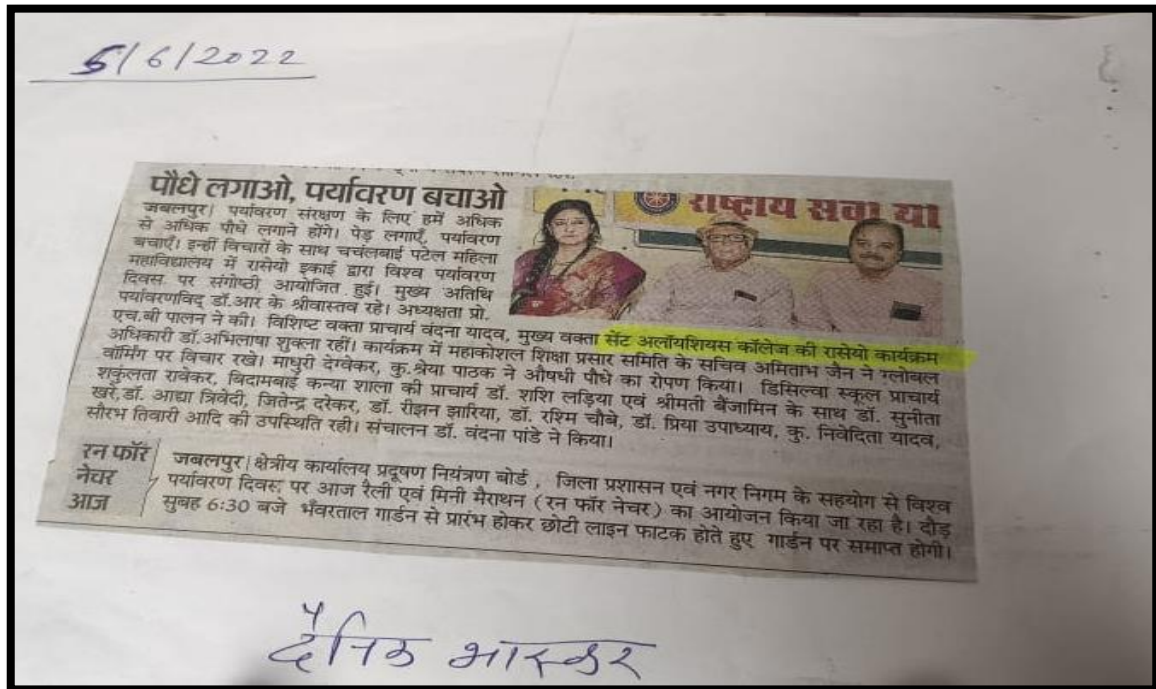 5/6/2022
पौधे लगाओ, पर्यावरण बचाओ
राष्ट्रीय सेवा यो
जबलपुर। पर्यावरण संरक्षण के लिए हमें अधिक
से अधिक पौधे लगाने होंगे। पेड़ लगाएँ, पर्यावरण
बचाएँ। इन्हीं विचारों के साथ चचंलबाई पटेल महिला
महाविद्यालय में रासेयो इकाई द्वारा विश्व पर्यावरण
दिवस पर संगोष्ठी आयोजित हुई। मुख्य अतिथि
पर्यावरणविद् डॉ.आर के श्रीवास्तव रहे। अध्यक्षता प्रो.
एच.बी पालन ने की। विशिष्ट वक्ता प्राचार्य वंदना यादव, मुख्य वक्ता सेंट अलॉयशियस कॉलेज की रासेयो कार्यक्रम
अधिकारी डॉ.अभिलाषा शुक्ला रहीं। कार्यक्रम में महाकोशल शिक्षा प्रसार समिति के सचिव अमिताभ जैन ने ग्लोबल
वॉर्मिंग पर विचार रखे। माधुरी देग्वेकर, कु.श्रेया पाठक ने औषधी पौधे का रोपण किया। डिसिल्वा स्कूल प्राचार्य
शकुंलता रावेकर, बिदामबाई कन्या शाला की प्राचार्य डॉ. शशि लड़िया एवं श्रीमती बैंजामिन के साथ डॉ. सुनीता
खरे,डॉ. आद्या त्रिवेदी, जितेन्द्र दरेकर, डॉ. रीझन झारिया, डॉ. रश्मि चौबे, डॉ. प्रिया उपाध्याय, कु. निवेदिता यादव,
सौरभ तिवारी आदि की उपस्थिति रही। संचालन डॉ. वंदना पांडे ने किया।
रन फॉर
नेचर
आज
जबलपुर। क्षेत्रीय कार्यालय प्रदूषण नियंत्रण बोर्ड , जिला प्रशासन एवं नगर निगम के सहयोग से विश्व
पर्यावरण दिवस पर आज रैली एवं मिनी मैराथन (रन फॉर नेचर) का आयोजन किया जा रहा है। दौड़
सुबह 6:30 बजे भँवरताल गार्डन से प्रारंभ होकर छोटी लाइन फाटक होते हुए गार्डन पर समाप्त होगी।
दैनिक भास्कर